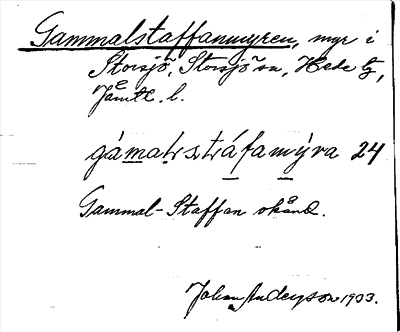 Gammalstaffanmyren, myr i
Storsjö, Storsjö sn, Hede tg,
Jämtl. l.
gámalstráfamýra 24
Gammal-Staffan okänd.
Johan Anderson 1933.